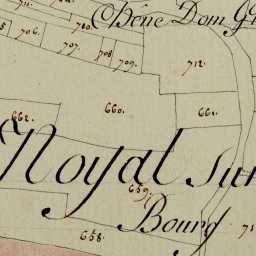 Chêne Dom
711.
706.
707.
708
709.
712.
662.
660.
661.
Noyal sur
659.
Bourg
658.